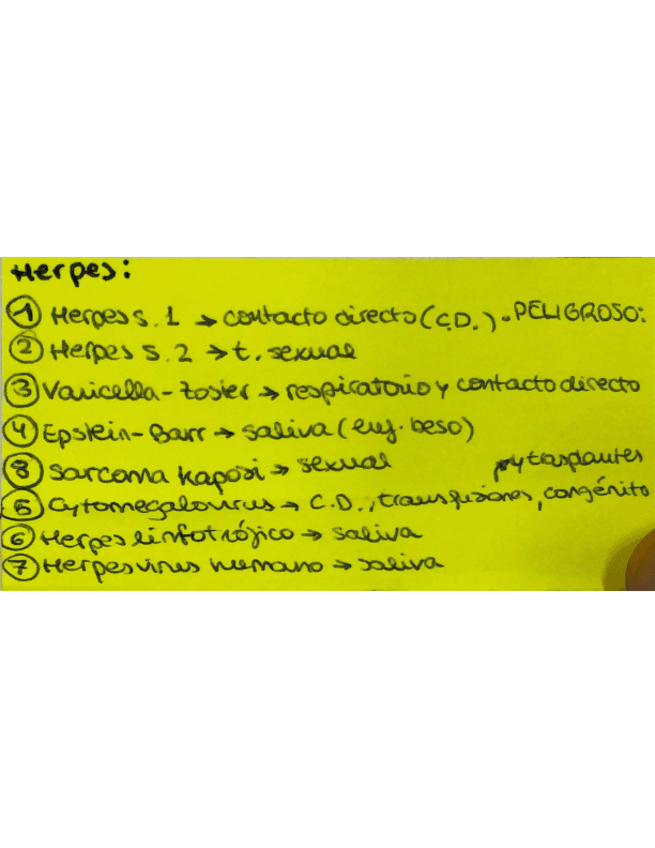 Herpes:
① Herpes s. 1 → contacto directo (C.D.) • PELIGROSO:
② Herpes s. 2 → t. sexual
③ Varicella-Zoster → respiratorio y contacto directo
④ Epstein-Barr → saliva (enf. beso)
⑧ Sarcoma Kaposi → sexual
y trasplantes
⑤ Cytomegalovirus → C.D., transfusiones, congénito
⑥ Herpes linfotrójico → saliva
⑦ Herpesvirus humano → saliva